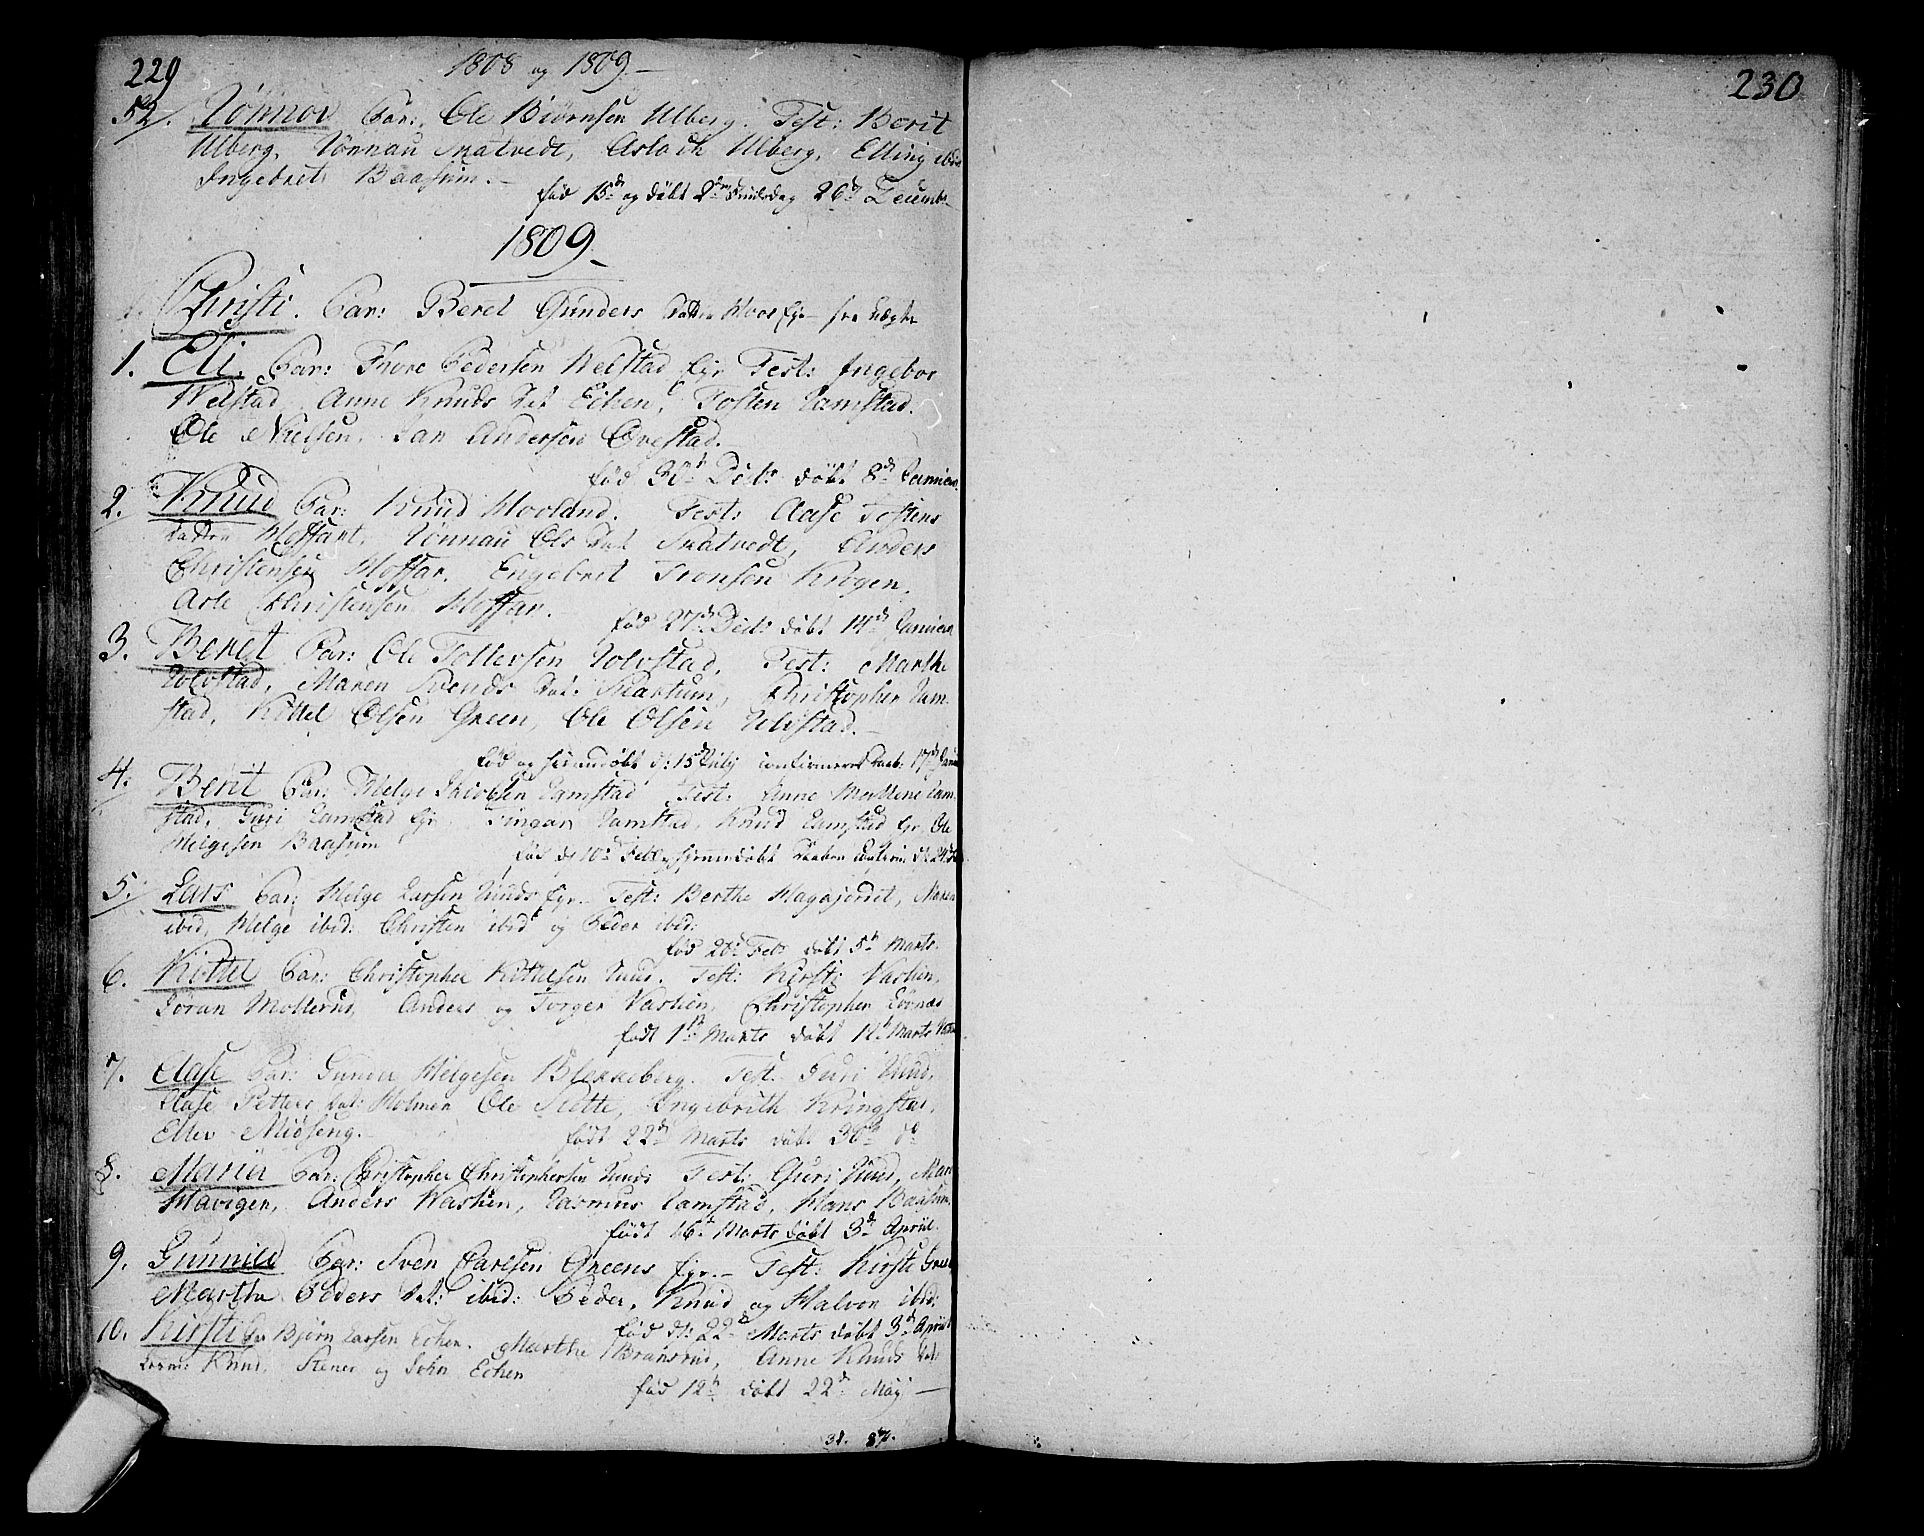 229
1808 og 1809
52. Tønnov Par: Ole Biørnsen Ulberg. Test: Berit
Ulberg, Tønnau Skatvedt, Aslach Ulberg, Elling ibid
Ingebret Baasum.
fød 15d og døbt 2den Juuledag 26d Decembr
1809
Christi. Par: Beret Gunders datter
1. Eli. Par: Thore Pedersen Welstad Ejr Test: Ingebor
Welstad, Anne Knuds dat Echen, Tosten Ramstad.
Ole Nielsen. Jan Andersen Ovestad.
fød 30t Decbr døbt 8d Januari
2. Knud Par: Knud Hovland. Test: Aase Tostens
datter Hoffart, Tønnau Ols dat Skatvedt, Anders
Christensen Hoffar. Engebret Tronsen Krogen.
Asle Christensen Hoffar.
fød 27d Decbr døbt 14d Januari
3. Beret Par: Ole Tollersen Tolvstad, Test: Marthe
Tolvstad, Maren Svends dat: Skartum, Christopher Ram-
stad, Kittel Olsen Green, Ole Olsen Tolvstad.
fød og hiemmedøbt d: 15d July confirmeret Daab: 17d
4. Berit Par: Helge Jacobsen Ramstad Test: Anne Ram-
stad, Guri Ramstad Ejr, Fingar Ramstad, Knud Ramstad Ejr, Ole
Helgesen Baasum
fød d: 10d Feb. hjemmedøbt Daaben d: 24d
5. Lars Par: Helge Larsen Ruuds Ejr. Test: Berthe Hagajordet, Maren
ibid, Helge ibid: Christen ibid og Peder ibid:
fød 20d Feb. døbt 5t Marts.
6. Kittel Par: Christopher Kittelsen Ruud. Test: Kirsti Vaslien,
Jøran Mollerud, Anders og Torger Vaslien, Christopher
født 1st Marts døbt 12t Marts
7. Aase Par: Gunder Helgesen Blekkeberg. Test. Guri Ruud,
Aase Petters dat: Holmen Ole Slette, Ingebrith Kringstad,
Ellev Miøseng.
født 22d Marts døbt 30t do
8. Maria Par: Christopher Christophersen Ruuds Test: Guri Ruud, Mari
Haavigen, Anders Waslien, Rasmus Ramstad, Hans Baasum.
født 16t Marts døbt 3d April.
9. Gunnild Par: Sven Carlsen Greens Ejr. Test: Kirsti Green
Marthe Peders dat: ibid: Peder, Knud og Halvor ibid:
fød d: 22d Marts døbt 3d April
10. Kirsti Par Bjørn Larsen Echen. Marthe Braasrud, Anne Knuds dat:
Knud, Stener og John Echen
fød 12t døbt 22d May
31. 87.
230